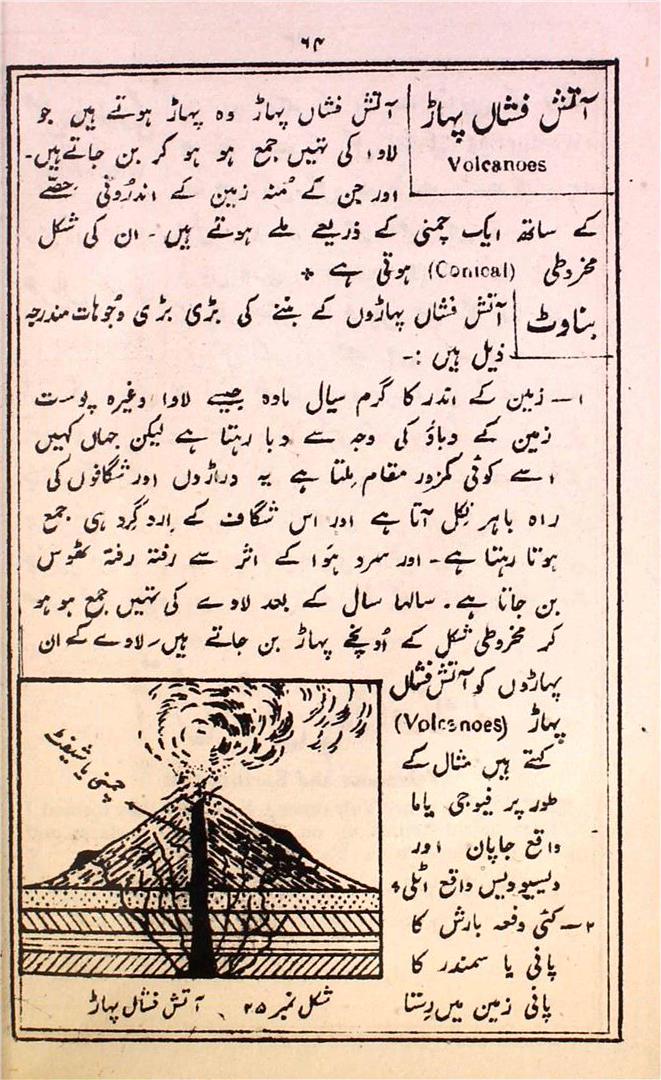 ۶۴
آتش فشاں پہاڑ
Volcanoes
آتش فشاں پہاڑ وہ پہاڑ ہوتے ہیں جو
لاوا کی تہیں جمع ہو ہو کر بن جاتے ہیں۔
اور جن کے مُنہ زمین کے اندرُونی حِصّے
کے ساتھ ایک چمنی کے ذریعے ملے ہوتے ہیں۔ ان کی شکل
مخروطی (Conical) ہوتی ہے +
بناوٹ
آتش فشاں پہاڑوں کے بننے کی بڑی بڑی وجُوہات مندرجہ
ذیل ہیں :۔
۱۔ زمین کے اندر کا گرم سیال مادہ جیسے لاوا وغیرہ پوست
زمین کے دباؤ کی وجہ سے دبا رہتا ہے لیکن جہاں کہیں
اسے کوئی کمزور مقام مِلتا ہے یہ دراڑوں اور شگافوں کی
راہ باہر نِکل آتا ہے اور اس شگاف کے اِرد گِرد ہی جمع
ہوتا رہتا ہے۔ اور سرد ہَوا کے اثر سے رفتہ رفتہ ٹھوس
بن جاتا ہے۔ سالہا سال کے بعد لاوے کی تہیں جمع ہو ہو
کر مخروطی شکل کے اُونچے پہاڑ بن جاتے ہیں۔ لاوے کے ان
پہاڑوں کو آتش فشاں
پہاڑ (Volcanoes)
کہتے ہیں مثال کے
طور پر فیوجی یاما
واقع جاپان اور
ویسیوویس واقع اٹلی +
۲۔ کئی دفعہ بارش کا
پانی یا سمندر کا
پانی زمین میں رِستا
چمنی یا شیفٹ
شکل نمبر ۲۵ ، آتش فشاں پہاڑ